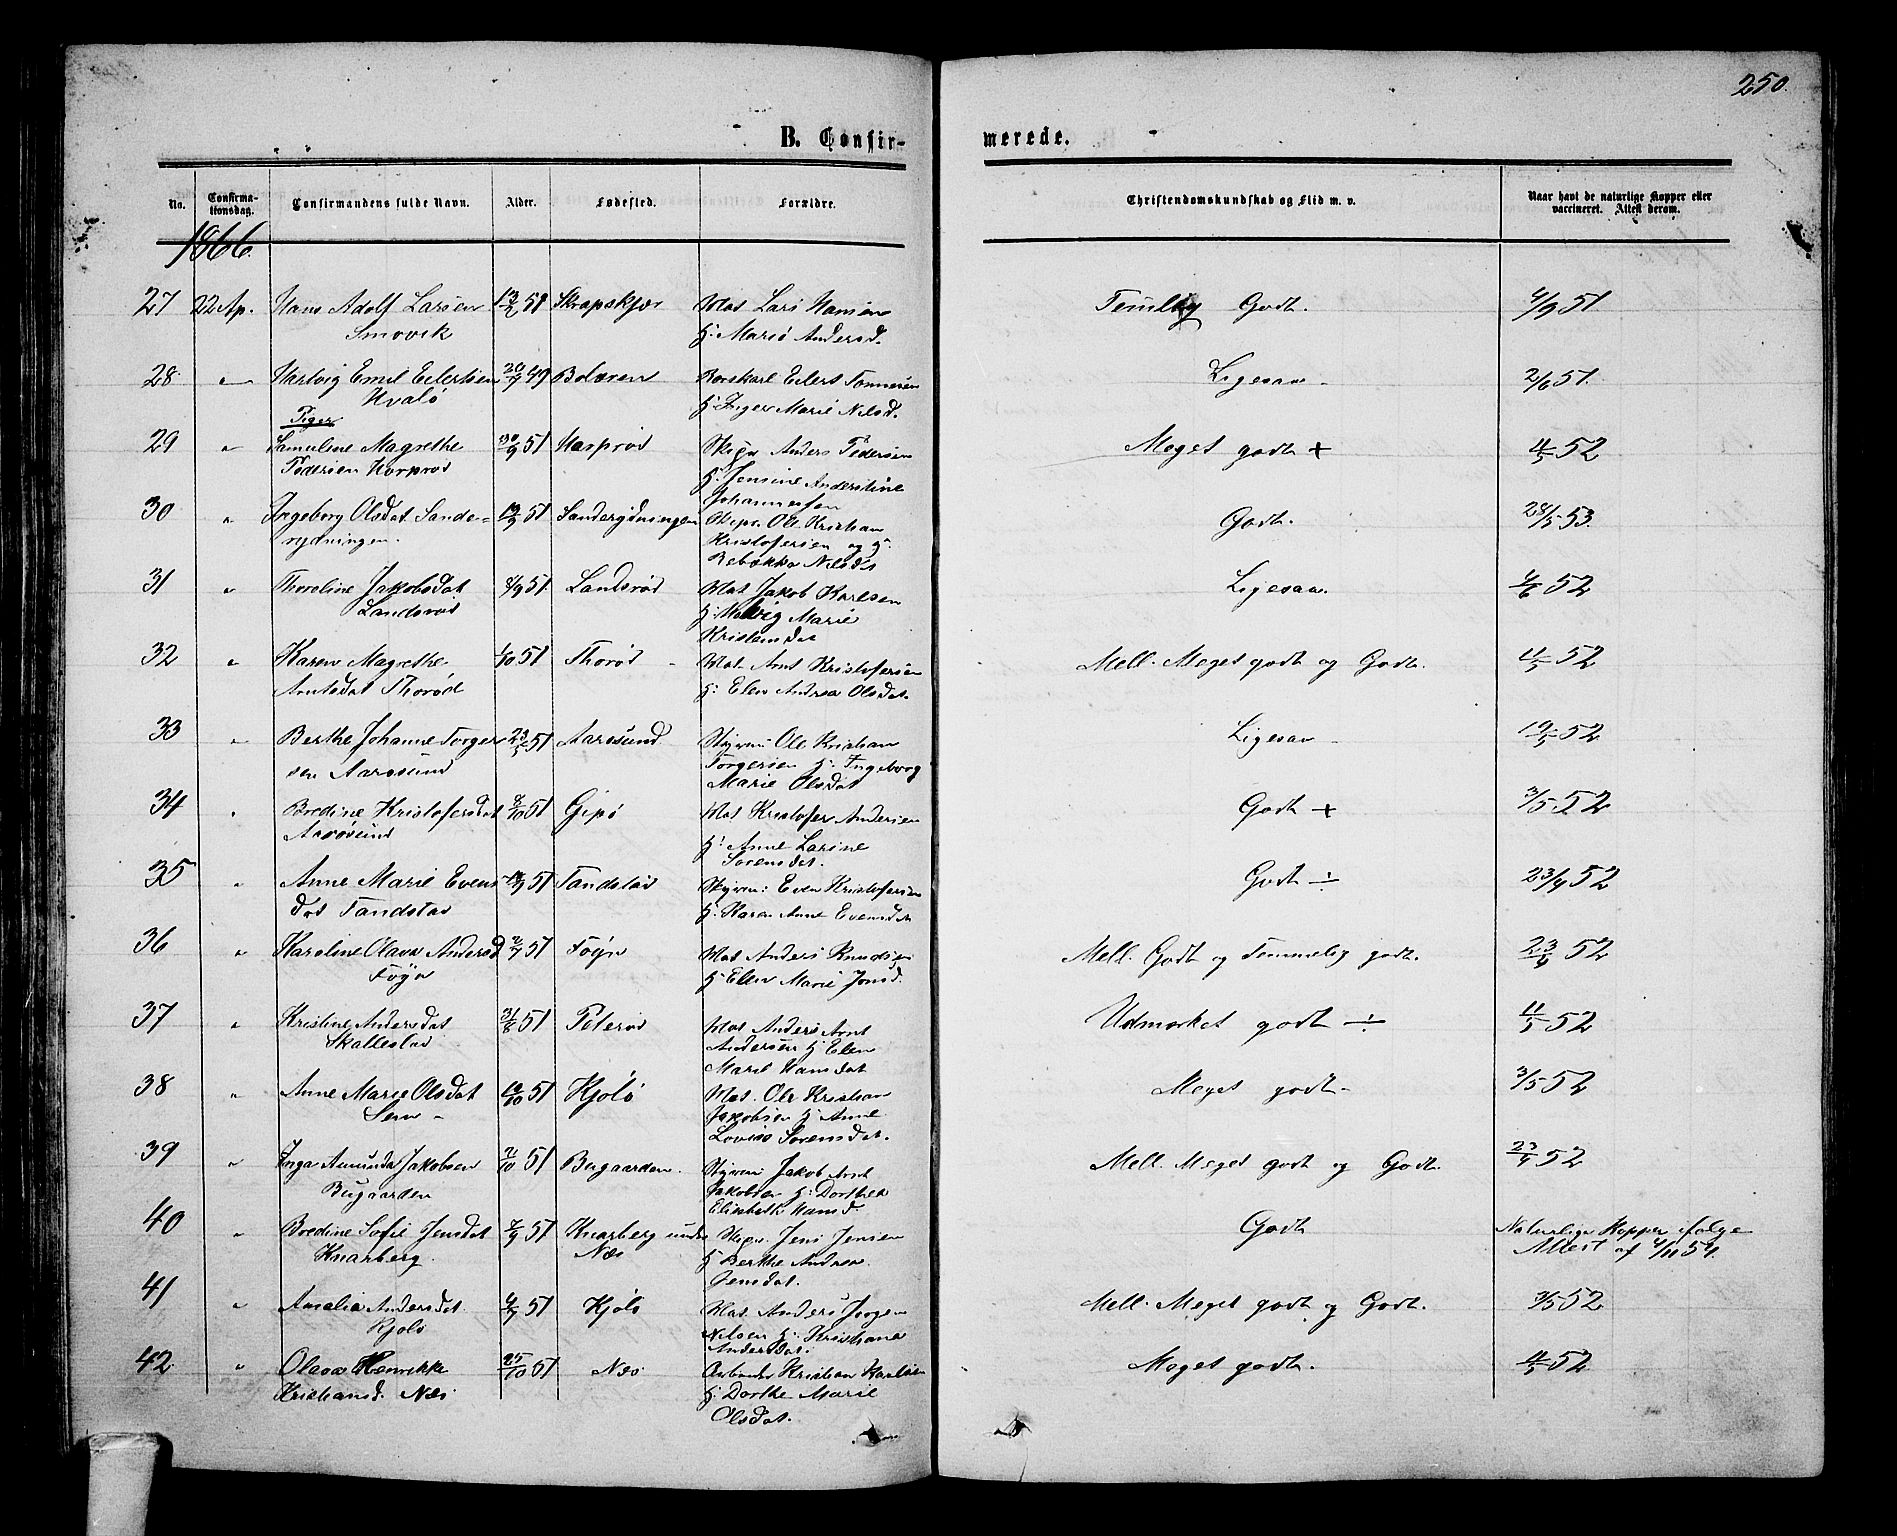 250.
B. Confir-
merede.
No.
Confirma-
tionsdag.
Confirmandens fulde Navn.
Alder.
Fødested.
Forældre.
Christendomskundskab og Flid m. v.
Naar havt de naturlige Kopper eller
vaccineret. Attest derom.
1866.
27 22 Ap. Hans Adolf Larsen 51 Skrapskjær Mat Lars Hansen Godt. 4/9 51.
Smovik h: Marie Andersd.
28 " Hartvig Emil Eilertsen 20/9 49 Bolæren Eilert Tonnesen Ligesaa 2/6 51.
Hvalø h: Inger Marie Nilsd.
Piger
29 " Samuline Magrethe 30/9 51 Harprød Skipr Anders Pedersen Meget godt + 4/5 52
Pedersen Harprød h: Jensine Anderstine
Johannesen
30 " Ingeborg Olsdat Sande- 51 Sanderydningen Skipr. Ole Kristian Godt. 28/5 53.
rydningen. Kristofersen og h:
Rebækka Nilsdt
31 " Thoroline Jakobsdat 8/9 51 Landsrød Mat Jakob Karlsen Ligesaa. 4/6 52
Landsrød h: Marie
32 " Karen Magrethe 1/10 51 Thorød Mat. Arnt Kristofersen Mell. Meget godt og Godt. 4/5 52
Arntsdat Thorød h: Elen Andrea Olsdat.
33 " Berthe Johanne Torger 51 Aarøsund Styrm: Ole Kristian Ligesaa 19/5 52
sen Aarøsund Torgersen h: Ingeborg
Marie Olsdat
34 " Bredine Kristofersdat 8/10 51 Gipø Mat Kristofer Andersen Godt + 3/5 52
Aarøsund h: Anne Larine
Sørensdat.
35 " Anne Marie Evens 51 Tandstad Styrm: Even Kristofersen Godt ÷ 23/4 52
dat Tandstad h: Karen Anne Evensdat
36 " Karoline Olava Andersd 51 Føyn Mat Anders Knudsen Mell. Godt og Temmelig godt. 23/4 52
Føyn h: Elen Marie Jensd.
37 " Kristine Andersdat 31/8 51 Peterød Mat Anders Arnt Udmærket godt ÷ 4/5 52
Skallestad Andersen h: Elen
Marie Hansdat
38 " Anne Marie Olsdat 51 Kjølø Mat. Ole Kristian Meget godt 3/5 52
Sem Jakobsen h: Anne
Lovise Sørensdat.
39 " Inga Amunda Jakobsen 51 Bugaarden. Styrm: Jakob Arnt Mell. Meget godt og Godt. 23/4 52
Bugaarden Jakobsen h: Dorthea
Elisabeth Hansd.
40 " Bredine Sofie Jensdat 51 Knarberg under Skipr. Jens Jensen Godt Naturlige Kopper ifølge
Knarberg. Næs h: Berthe Andrea Attest af 4/11 54.
Jensdat.
41 " Amalia Andersdat 51 Kjølø Mat. Anders Jørgen Mell. Meget godt og Godt. 3/5 52
Kjølø Nilsen h: Kristiane
Andersdat.
42 " Olava Henrikke 25/10 51 Næs Arbeider Kristian Karlsen Meget godt. 4/5 52
Kristiansd. Næs h: Dorthe Marie
Olsdat.